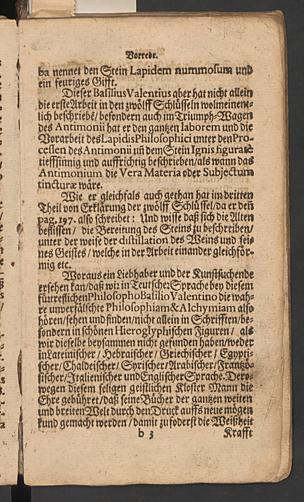 Vorrede.
ba nennet den Stein Lapidem nummosum und
ein feuriges Gifft.
Dieser Basilius Valentius aber hat nicht allein
die erste Arbeit in den zwölff Schlüsseln wolmeinent-
lich beschriebē/ besondern auch im Triumph-Wagen
des Antimonii hat er den gantzen laborem und die
Vorarbeit des Lapidis Philosophici unter den Pro-
cessen des Antimonii uñ dem Stein Ignis figuratæ
tieffsinnig und auffrichtig beschrieben/ als wann das
Antimonium die Vera Materia oder Subjectum
tincturæ wäre.
Wie er gleichfals auch gethan hat im dritten
Theil von Erklärung der zwölff Schlüssel/ da er den
pag. 197. also schreibet: Und wisse daß sich die Alten
beflissen/ die Bereitung des Steins zu beschreiben/
unter der weise der distillation des Weins und sei-
nes Geistes/ welche in der Arbeit einander gleichför-
mig etc.
Woraus ein Liebhaber und der Kunst suchende
ersehen kan/ daß wir in Teutscher Sprache bey diesem
fürtrefflichen Philosopho Basilio Valentino die wah-
re unverfälschte Philosophiam & Alchymiam also
hören/ sehen und finden/ nicht allein in Schrifften/ be-
sondern in schönen Hieroglyphischen Figuren/ als
wir dieselbe beysammen nicht gefunden haben/ weder
in Lateinischer/ Hebraischer/ Griechischer/ Egypti-
scher/ Chaldeischer/ Syrischer/ Arabischer/ Frantzö-
sischer/ Italienischer und Englischer Sprache. Dero-
wegen diesem seligen geistlichen Kloster Mann die
Ehre gebühret/ daß seine Bücher der gantzen weiten
und breiten Welt durch den Druck auffs neue mögen
kund gemacht werden/ damit zu foderst die Weißheit
b 3 Krafft